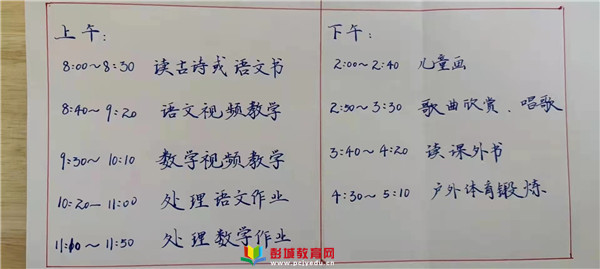 上午：
8:00～8:30 读古诗或语文书
8:40～9:20 语文视频教学
9:30～10:10 数学视频教学
10:20—11:00 处理语文作业
11:10～11:50 处理数学作业
下午：
2:00～2:40 儿童画
2:50～3:30 歌曲欣赏、唱歌
3:40～4:20 读课外书
4:30～5:10 户外体育锻炼
彭城教育网
www.pcjyedu.cn